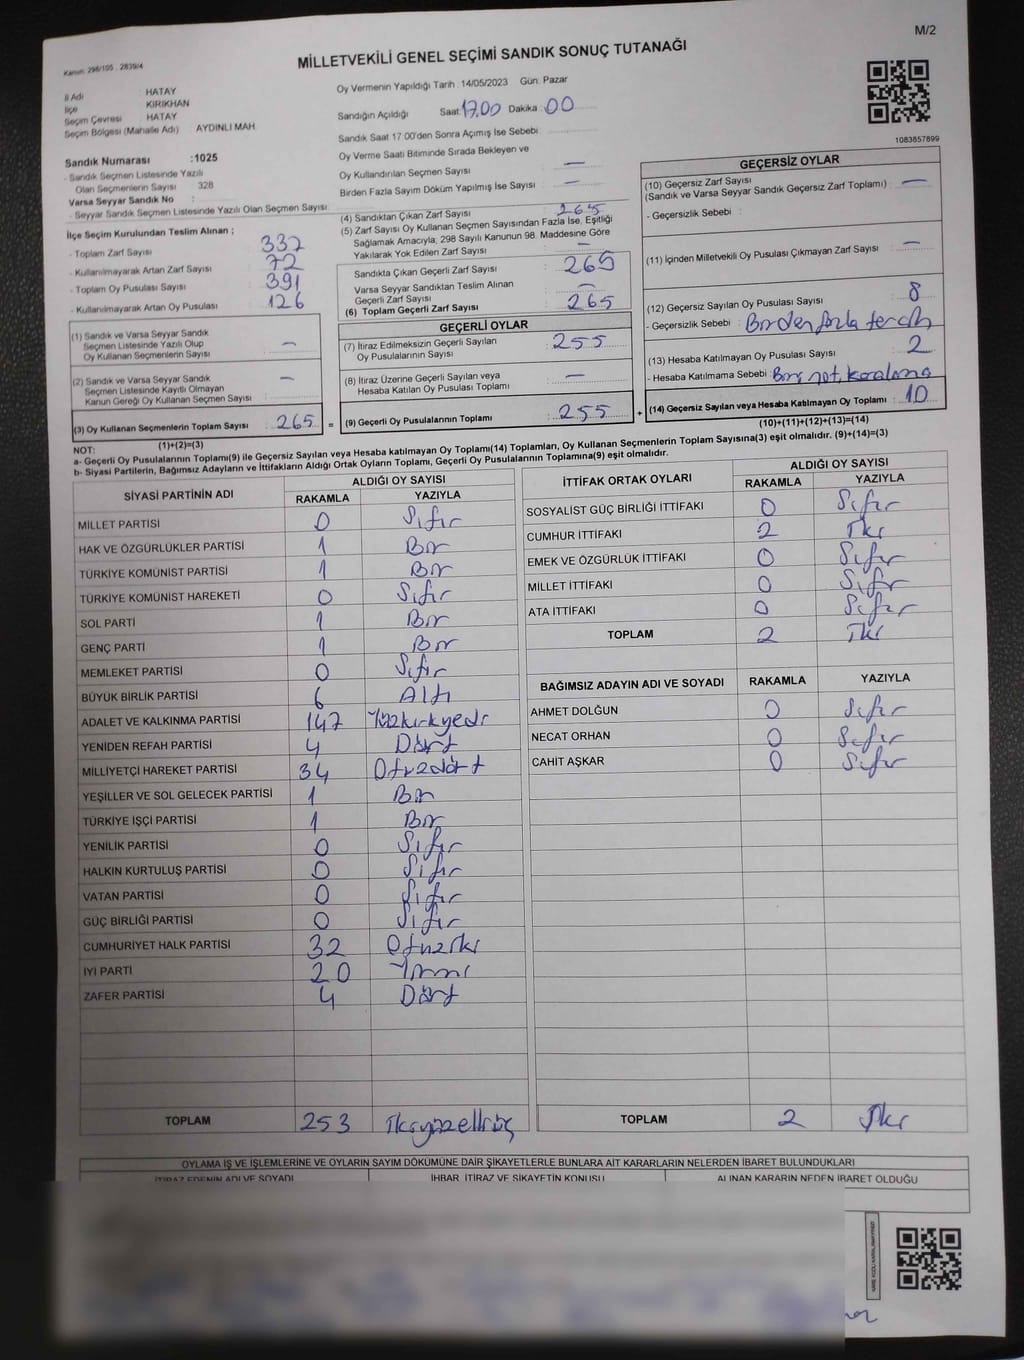 M/2
Kanun: 298/105 2839/4
MİLLETVEKİLİ GENEL SEÇİMİ SANDIK SONUÇ TUTANAĞI
İl Adı HATAY
İlçe KIRIKHAN
Seçim Çevresi HATAY
Seçim Bölgesi (Mahalle Adı) AYDINLI MAH
Sandık Numarası :1025
- Sandık Seçmen Listesinde Yazılı
Olan Seçmenlerin Sayısı 328
Varsa Seyyar Sandık No :
- Seyyar Sandık Seçmen Listesinde Yazılı Olan Seçmen Sayısı:
İlçe Seçim Kurulundan Teslim Alınan ;
- Toplam Zarf Sayısı : 337
- Kullanılmayarak Artan Zarf Sayısı : 72
- Toplam Oy Pusulası Sayısı : 391
- Kullanılmayarak Artan Oy Pusulası : 126
(1) Sandık ve Varsa Seyyar Sandık
Seçmen Listesinde Yazılı Olup
Oy Kullanan Seçmenlerin Sayısı : —
(2) Sandık ve Varsa Seyyar Sandık
Seçmen Listesinde Kayıtlı Olmayan
Kanun Gereği Oy Kullanan Seçmen Sayısı : —
(3) Oy Kullanan Seçmenlerin Toplam Sayısı : 265 =
(1)+(2)=(3)
Oy Vermenin Yapıldığı Tarih : 14/05/2023 Gün: Pazar
Sandığın Açıldığı Saat: 17.00 Dakika : 00
Sandık Saat 17.00'den Sonra Açılmış İse Sebebi :
Oy Verme Saati Bitiminde Sırada Bekleyen ve
Oy Kullandırılan Seçmen Sayısı : —
Birden Fazla Sayım Döküm Yapılmış İse Sayısı : —
(4) Sandıktan Çıkan Zarf Sayısı : 265
(5) Zarf Sayısı Oy Kullanan Seçmen Sayısından Fazla İse, Eşitliği
Sağlamak Amacıyla, 298 Sayılı Kanunun 98. Maddesine Göre
Yakılarak Yok Edilen Zarf Sayısı : —
Sandıkta Çıkan Geçerli Zarf Sayısı : 265
Varsa Seyyar Sandıktan Teslim Alınan
Geçerli Zarf Sayısı : —
(6) Toplam Geçerli Zarf Sayısı : 265
GEÇERLİ OYLAR
(7) İtiraz Edilmeksizin Geçerli Sayılan
Oy Pusulalarının Sayısı : 255
(8) İtiraz Üzerine Geçerli Sayılan veya
Hesaba Katılan Oy Pusulası Toplamı : —
(9) Geçerli Oy Pusulalarının Toplamı : 255 +
1083857899
GEÇERSİZ OYLAR
(10) Geçersiz Zarf Sayısı
(Sandık ve Varsa Seyyar Sandık Geçersiz Zarf Toplamı) : —
- Geçersizlik Sebebi :
(11) İçinden Milletvekili Oy Pusulası Çıkmayan Zarf Sayısı : —
(12) Geçersiz Sayılan Oy Pusulası Sayısı : 8
- Geçersizlik Sebebi : Birden fazla tercih
(13) Hesaba Katılmayan Oy Pusulası Sayısı : 2
- Hesaba Katılmama Sebebi : Boş, not, karalama
(14) Geçersiz Sayılan veya Hesaba Katılmayan Oy Toplamı : 10
(10)+(11)+(12)+(13)=(14)
NOT:
a- Geçerli Oy Pusulalarının Toplamı(9) ile Geçersiz Sayılan veya Hesaba katılmayan Oy Toplamı(14) Toplamları, Oy Kullanan Seçmenlerin Toplam Sayısına(3) eşit olmalıdır. (9)+(14)=(3)
b- Siyasi Partilerin, Bağımsız Adayların ve İttifakların Aldığı Ortak Oyların Toplamı, Geçerli Oy Pusulalarının Toplamına(9) eşit olmalıdır.
SİYASİ PARTİNİN ADI ALDIĞI OY SAYISI
RAKAMLA YAZIYLA
MİLLET PARTİSİ 0 Sıfır
HAK VE ÖZGÜRLÜKLER PARTİSİ 1 Bir
TÜRKİYE KOMÜNİST PARTİSİ 1 Bir
TÜRKİYE KOMÜNİST HAREKETİ 0 Sıfır
SOL PARTİ 1 Bir
GENÇ PARTİ 1 Bir
MEMLEKET PARTİSİ 0 Sıfır
BÜYÜK BİRLİK PARTİSİ 6 Altı
ADALET VE KALKINMA PARTİSİ 147 Yüzkırkyedi
YENİDEN REFAH PARTİSİ 4 Dört
MİLLİYETÇİ HAREKET PARTİSİ 34 Otuzdört
YEŞİLLER VE SOL GELECEK PARTİSİ 1 Bir
TÜRKİYE İŞÇİ PARTİSİ 1 Bir
YENİLİK PARTİSİ 0 Sıfır
HALKIN KURTULUŞ PARTİSİ 0 Sıfır
VATAN PARTİSİ 0 Sıfır
GÜÇ BİRLİĞİ PARTİSİ 0 Sıfır
CUMHURİYET HALK PARTİSİ 32 Otuziki
İYİ PARTİ 20 Yirmi
ZAFER PARTİSİ 4 Dört
TOPLAM 253 İkiyüzelliüç
İTTİFAK ORTAK OYLARI ALDIĞI OY SAYISI
RAKAMLA YAZIYLA
SOSYALİST GÜÇ BİRLİĞİ İTTİFAKI 0 Sıfır
CUMHUR İTTİFAKI 2 İki
EMEK VE ÖZGÜRLÜK İTTİFAKI 0 Sıfır
MİLLET İTTİFAKI 0 Sıfır
ATA İTTİFAKI 0 Sıfır
TOPLAM 2 İki
BAĞIMSIZ ADAYIN ADI VE SOYADI RAKAMLA YAZIYLA
AHMET DOLĞUN 0 Sıfır
NECAT ORHAN 0 Sıfır
CAHİT AŞKAR 0 Sıfır
TOPLAM 2 İki
OYLAMA İŞ VE İŞLEMLERİNE VE OYLARIN SAYIM DÖKÜMÜNE DAİR ŞİKAYETLERLE BUNLARA AİT KARARLARIN NELERDEN İBARET BULUNDUKLARI
İTİRAZ EDENİN ADI VE SOYADI İHBAR, İTİRAZ VE ŞİKAYETİN KONUSU ALINAN KARARIN NEDEN İBARET OLDUĞU